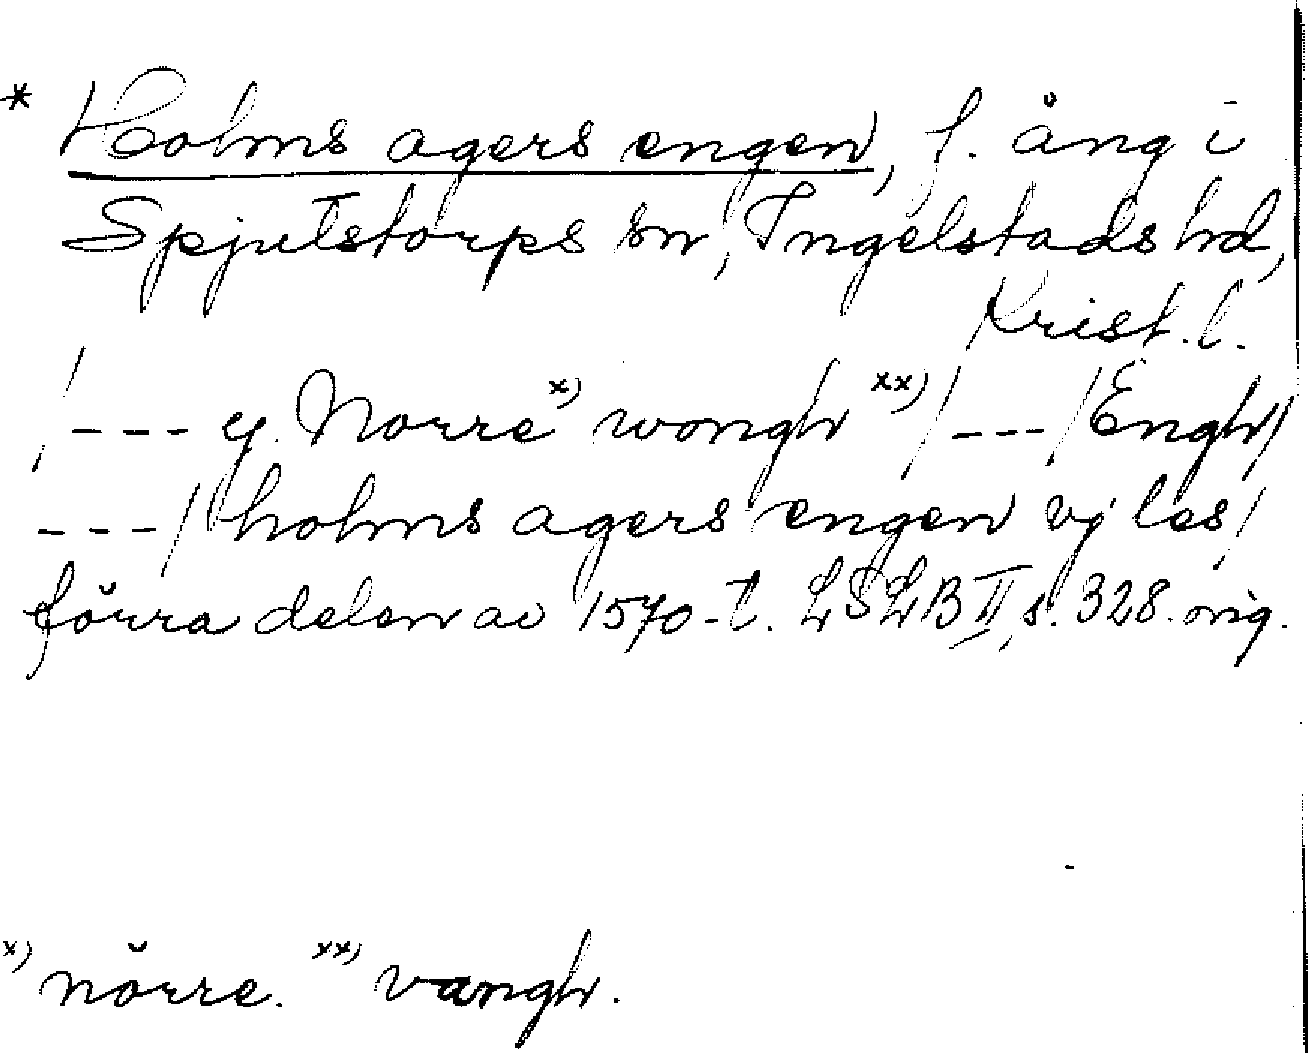 * Holms agers engen, f. äng i
Spjutstorps sn, Ingelstads hd,
Krist. l.
/--- y. Norre x) wongh xx) /---/ Engh/
---/ holms agers engen vj les/
förra delen av 1570-t. LSLB II, s. 328. orig.
x) nörre. xx) vangh.